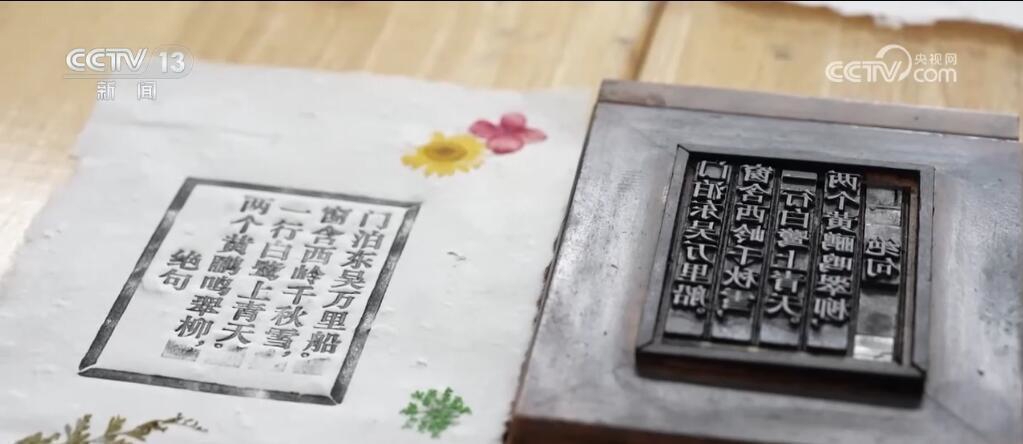 CCTV 13
新闻
央视网
CCTV.com
绝句
两个黄鹂鸣翠柳，
一行白鹭上青天。
窗含西岭千秋雪，
门泊东吴万里船。
绝句
两个黄鹂鸣翠柳，
一行白鹭上青天。
窗含西岭千秋雪，
门泊东吴万里船。